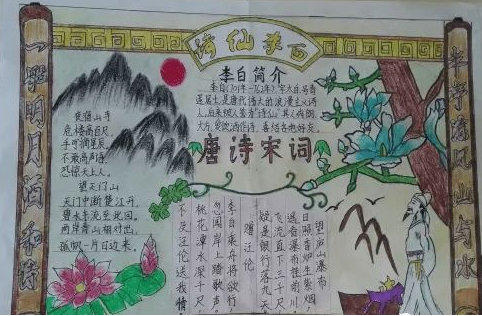 诗仙李白
一壶明月酒和诗
半字清风山与水
李白简介
李白(701年—762年),字太白,号青
莲居士,是唐代伟大的浪漫主义诗
人,后来被人誉为"诗仙"其人爽朗
大方,爱饮酒作诗,喜结交朋友。
唐诗宋词
夜宿山寺
危楼高百尺,
手可摘星辰
不敢高声语
恐惊天上人。
望天门山
天门中断楚江开,
碧水东流至此回。
两岸青山相对出,
孤帆一片日边来。
望庐山瀑布
日照香炉生紫烟,
遥看瀑布挂前川
飞流直下三千尺
疑是银河落九天
赠汪伦
李白乘舟将欲行
忽闻岸上踏歌声
桃花潭水深千尺
不及汪伦送我情